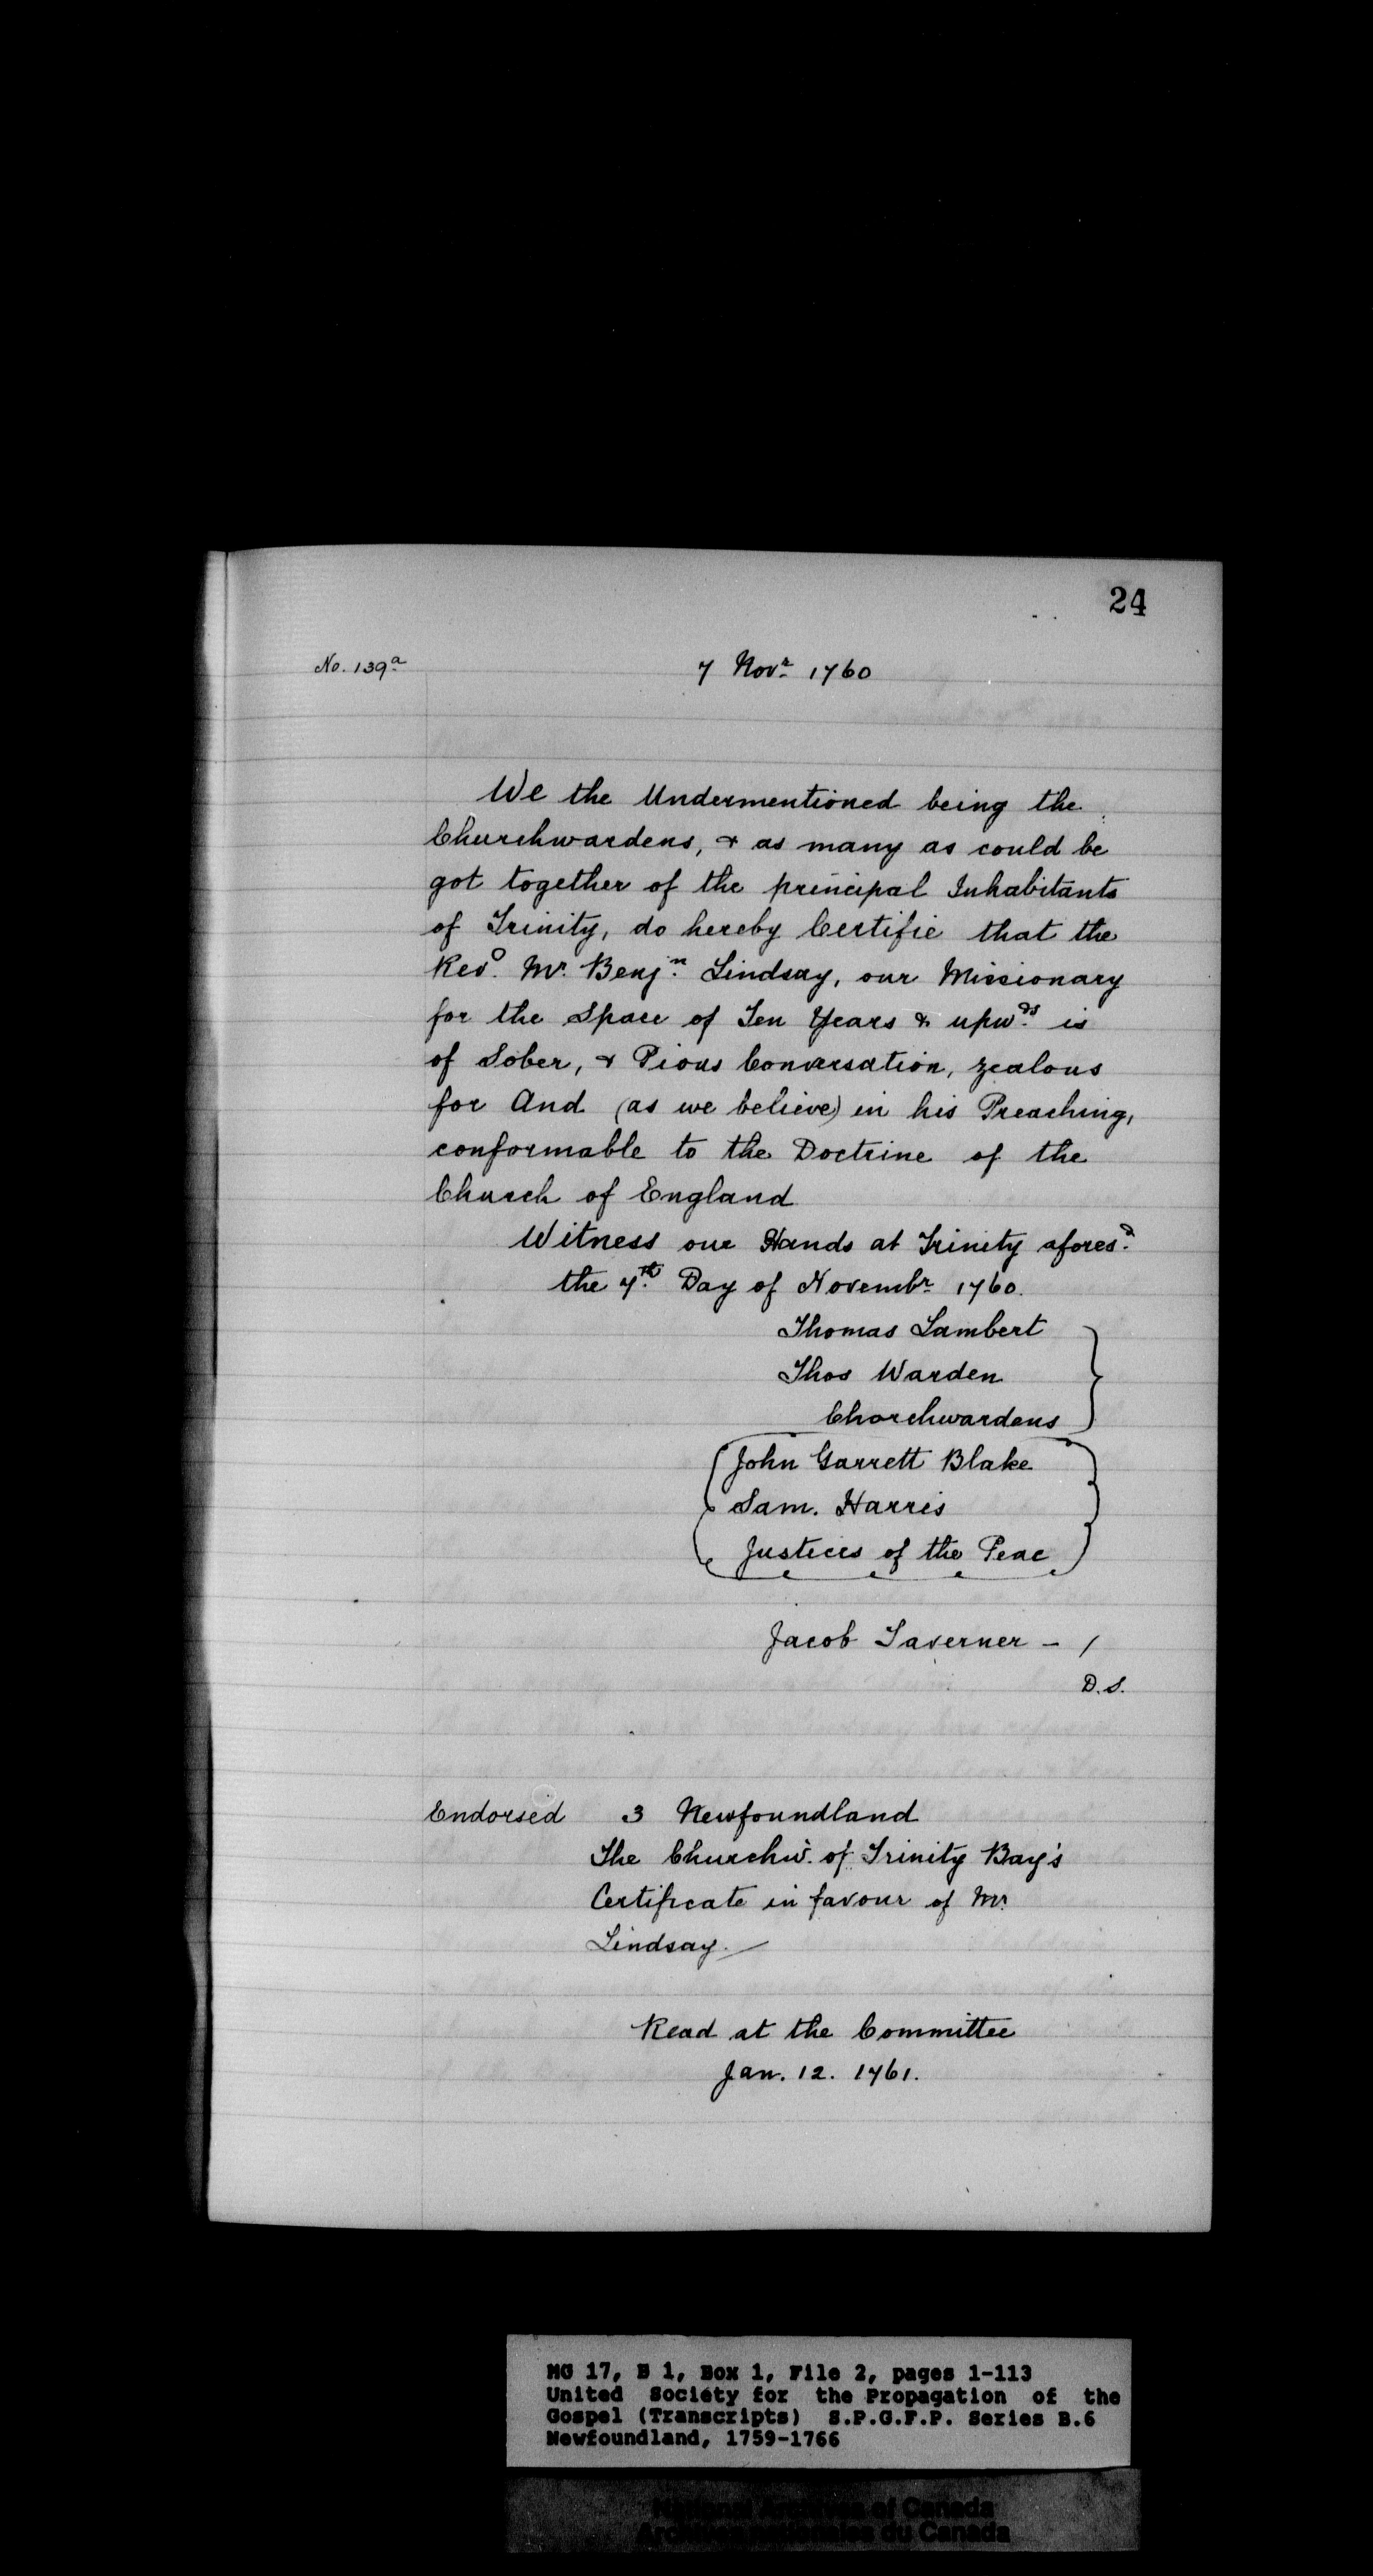 24
No. 139a
7 Novr 1760
We the Undermentioned being the
Churchwardens, & as many as could be
got together of the principal Inhabitants
of Trinity, do hereby Certifie that the
Revd. Mr. Benjn. Lindsay, our Missionary
for the Space of Ten Years & upwds. is
of Sober, & Pious Conversation, zealous
for And (as we believe) in his Preaching,
conformable to the Doctrine of the
Church of England
Witness our Hands at Trinity aforesd.
the 7th. Day of Novembr 1760.
Thomas Lambert
Thos Warden
Chorchwardens
John Garrett Blake
Sam. Harris
Justices of the Peac
Jacob Taverner - /
D.S.
Endorsed 3 Newfoundland
The Churchws. of Trinity Bay's
Certificate in favour of Mr.
Lindsay.
Read at the Committee
Jan. 12. 1761.
MG 17, B 1, Box 1, File 2, pages 1-113
United Society for the Propagation of the
Gospel (Transcripts) S.P.G.F.P. Series B.6
Newfoundland, 1759-1766
National Archives of Canada
Archives nationales du Canada